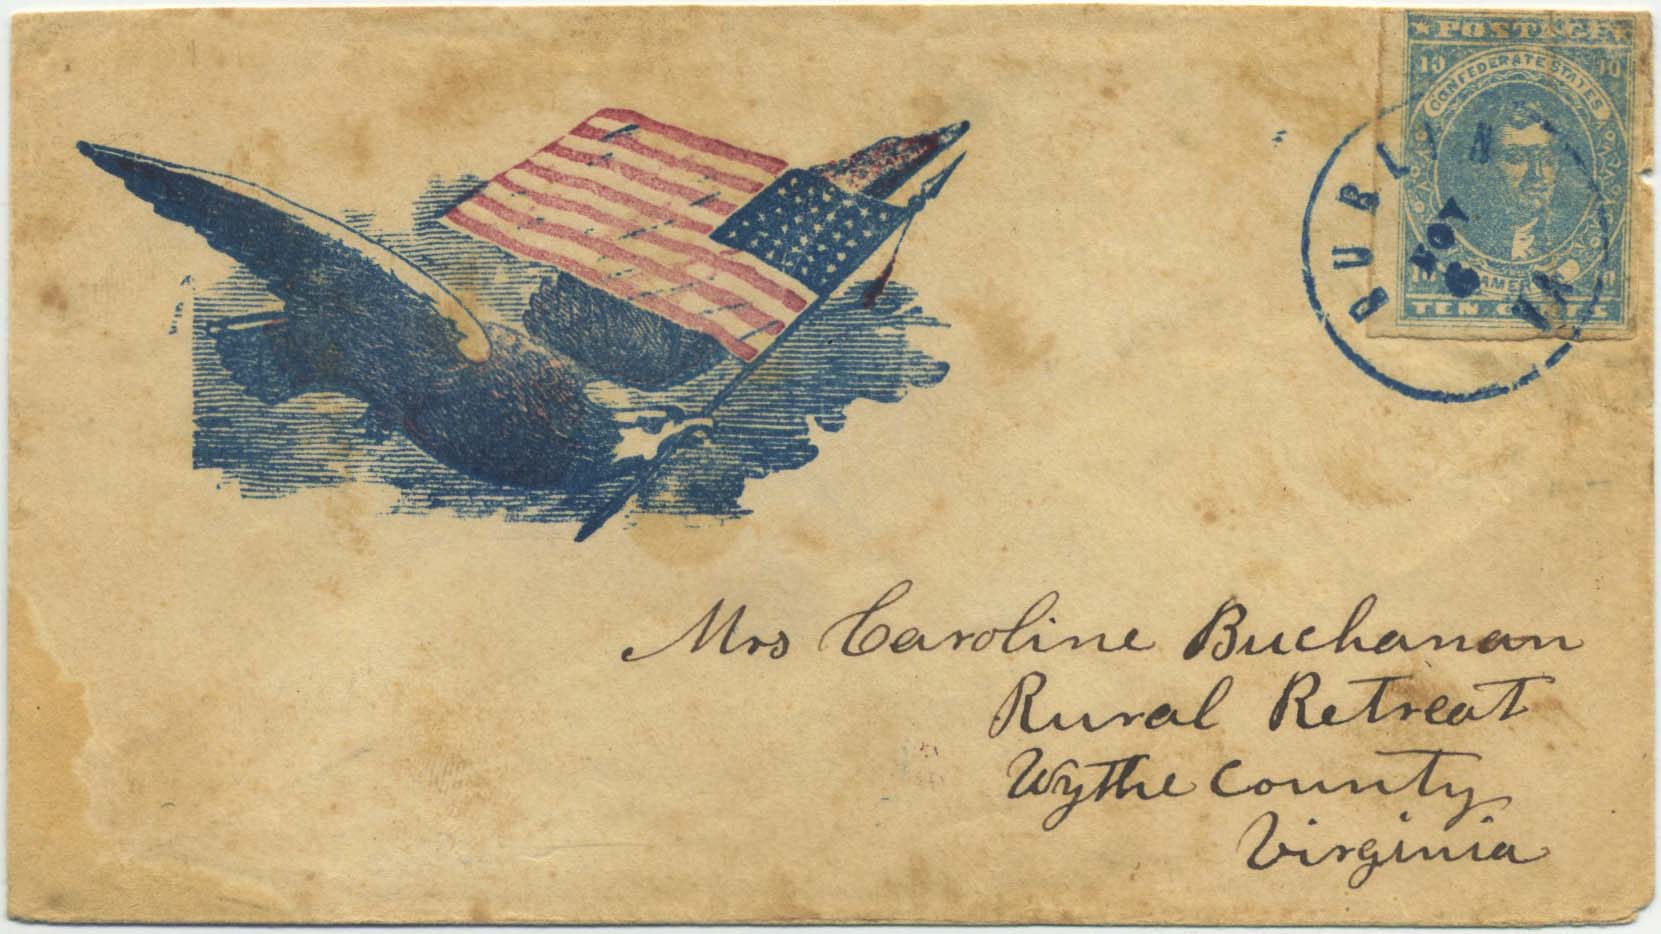 ★ POSTAGE ★
10 10
CONFEDERATE STATES
AMERICA
10
TEN CENTS
DUBLIN
NOV
6
VA
Mrs Caroline Buchanan
Rural Retreat
Wythe County
Virginia